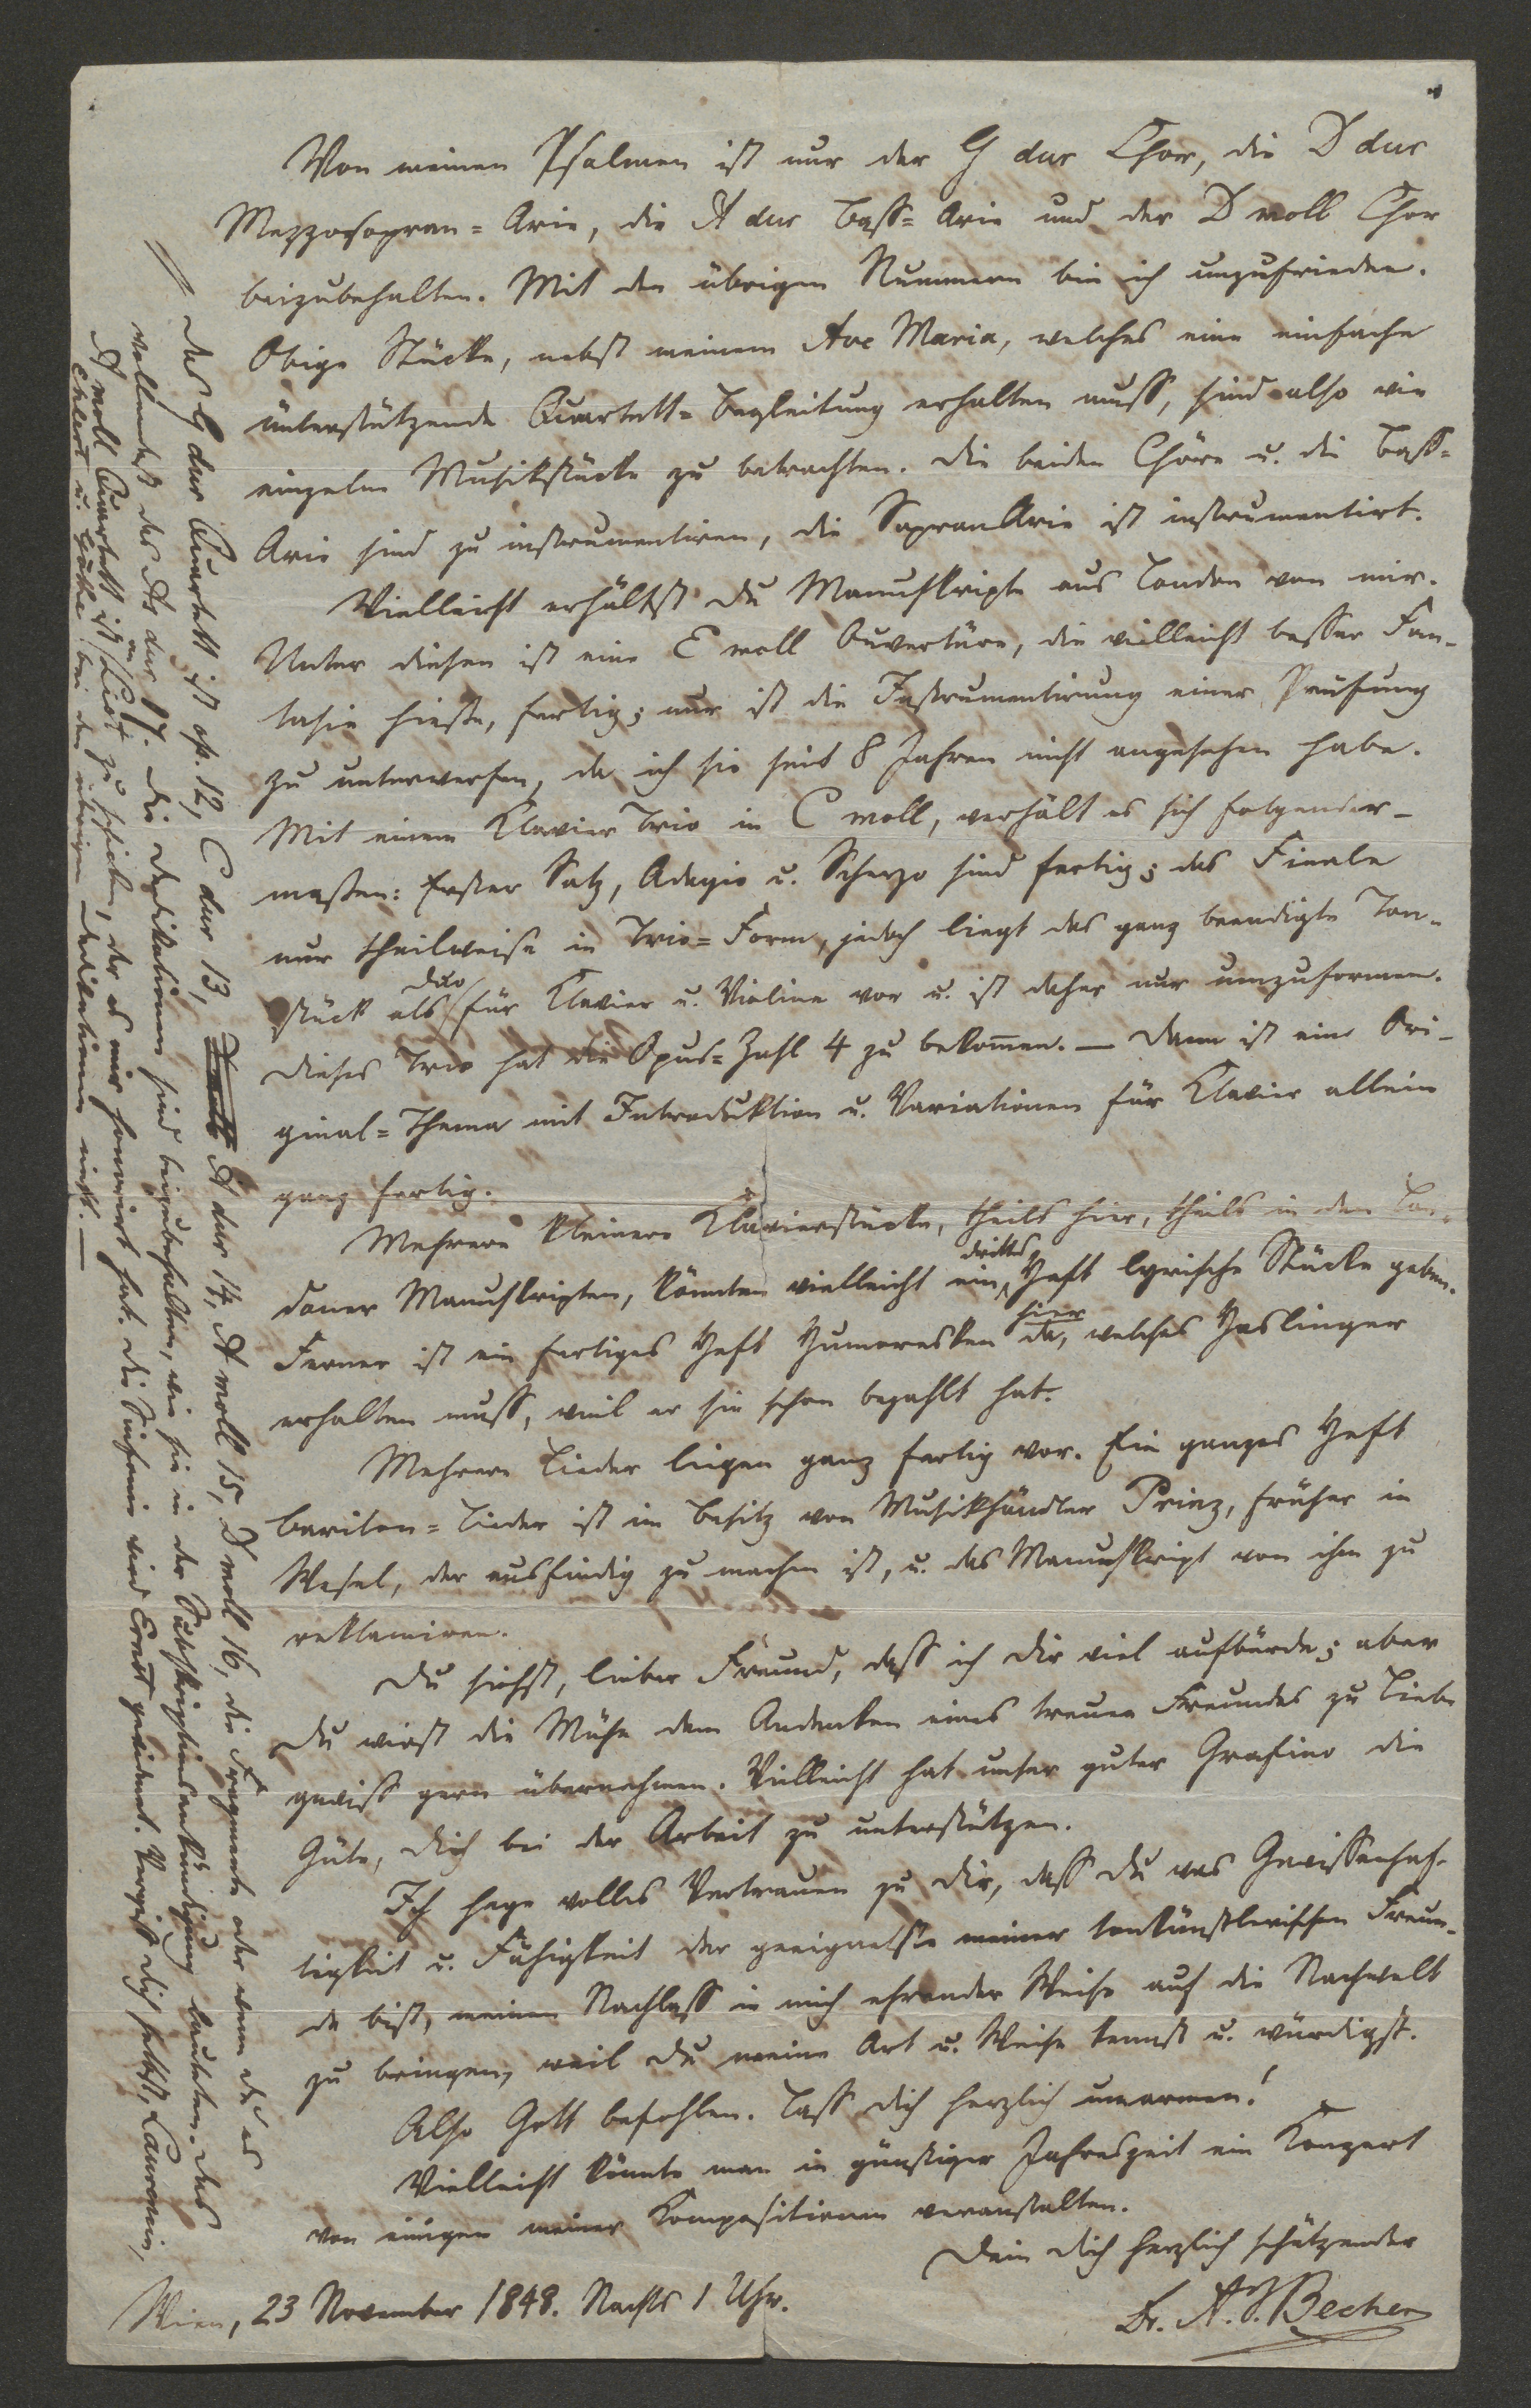 Von meinen Psalmen ist nur der G dur Chor, die D dur
Mezzosopran=Arie, die A dur Bass=Arie und der D moll Chor
beizubehalten. Mit den übrigen Nummern bin ich unzufrieden.
Obige Stücke, nebst meinem Ave Maria, welches eine einfache
unterstützende Quartett=Begleitung erhalten muß, sind also wie
einzelne Musikstücke zu betrachten. Die beiden Chöre u. die Bass=
Arie sind zu instrumentiren, die Sopran Arie ist instrumentirt.
Vielleicht erhältst du Manuskripte aus London von mir.
Unter diesen ist eine E moll Ouvertüre, die vielleicht besser Fan-
tasie hieße, fertig; nur ist die Instrumentirung einer Prüfung
zu unterwerfen, da ich sie seit 8 Jahren nicht angesehen habe.
Mit einem Klavier Trio in C moll, verhält es sich folgender-
maßen: Erster Satz, Adagio u. Scherzo sind fertig; das Finale
nur theilweise in Trio=Form, jedoch liegt das ganz beendigte Ton-
stück als Duo für Klavier u. Violine vor u. ist daher nur umzuformen.
Dieses Trio hat die Opus=Zahl 4 zu bekom̄en. — Dann ist ein Ori-
ginal=Thema mit Introduktion u. Variationen für Klavier allein
ganz fertig.
Mehrere kleinere Klavierstücke, theils hier, theils in den Lon-
doner Manuskripten, könnten vielleicht ein drittes Heft lyrische Stücke geben.
Ferner ist ein fertiges Heft Humoresken hier da, welches Haslinger
erhalten muß, weil er sie schon bezahlt hat.
Mehrere Lieder liegen ganz fertig vor. Ein ganzes Heft
Bariton=Lieder ist im Besitz von Musikhändler Prinz, früher in
Wesel, der ausfindig zu machen ist, u. das Manuskript von ihm zu
reklamiren.
Du siehst, lieber Freund, daß ich dir viel aufbürde; aber
du wirst die Mühe dem Andenken eines treuen Freundes zu Liebe
gewiß gern übernehmen. Vielleicht hat unser guter Grafino die
Güte, dich bei der Arbeit zu unterstützen.
Ich hege volles Vertrauen zu dir, daß du was Gewissenhaf-
tigkeit u. Fähigkeit der geeignetste meiner tonkünstlerischen Freun-
de bist, meinen Nachlaß in mich ehrender Weise auf die Nachwelt
zu bringen, weil du meine Art u. Weise kennst u. würdigst.
Also Gott befohlen. Laß dich herzlich umarmen!
Vielleicht könnte man in günstiger Jahreszeit ein Konzert
von einigen meiner Kompositionen veranstalten.
Dein dich herzlich schätzender
Dr. A. J. Becher
Wien, 23 November 1848. Nachts 1 Uhr.
Das G dur Quartett ist op. 12, C dur 13, A dur 14, A moll 15, D moll 16, die Fragmente oder wenn du es
vollendest das As dur 17. Die Dedikationen sind beizubehalten, wie sie in der Subskriptionsankündigung lauteten. Das
A moll Quartett ist an Lißt zu schicken, der es mir honorirt hat. Die Sinfonie wird Ernst gewidmet. Vergiß dich selbst, Laurencin,
Ehlert u. Göthe bei den übrigen Dedikationen nicht. —